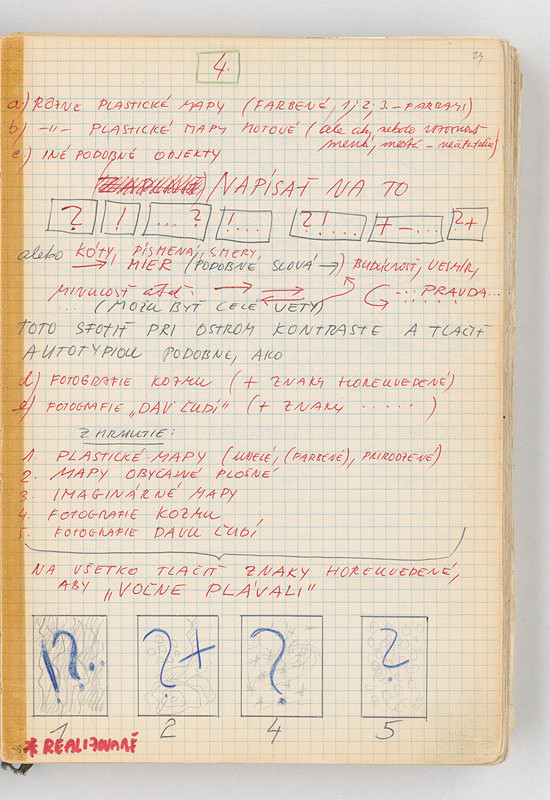 24
4.
a) RÔZNE PLASTICKÉ MAPY (FARBENÉ, 1, 2, 3. – FARBAMI)
b) –||– PLASTICKÉ MAPY HOTOVÉ (ale ak, nebolo
mená, mestá –
c) INÉ PODOBNÉ OBJEKTY
NAPÍSAŤ NA TO
? ! ... ? !.... ?!.... + – ... ?+
alebo KÓTY, PÍSMENÁ, SMERY,
→, MIER (PODOBNÉ SLOVÁ →) BUDÚCNOSŤ, VESMÍR,
MINULOSŤ atď. → → ... PRAVDA...
... (MOŽU BYŤ CELÉ VETY)
TOTO SFOTIŤ PRI OSTROM KONTRASTE A TLAČIŤ
AUTOTYPIOU PODOBNE, AKO
d) FOTOGRAFIE KOZMU (+ ZNAKY HOREUVEDENÉ)
e) FOTOGRAFIE „DAV ĽUDÍ" (+ ZNAKY ...... )
ZHRNUTIE:
1. PLASTICKÉ MAPY ((FARBENÉ), PRIRODZENÉ)
2. MAPY OBYČAJNÉ PLOŠNÉ
3 IMAGINÁRNE MAPY
4. FOTOGRAFIE KOZMU
5. FOTOGRAFIE DAVU ĽUDÍ
NA VŠETKO TLAČIŤ ZNAKY HOREUVEDENÉ,
ABY „VOĽNE PLÁVALI"
!?.. ?+ ? ?
1 2 4 5
* REALIZOVANÉ